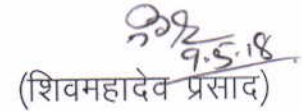 9.5.18
(शिवमहादेव प्रसाद)